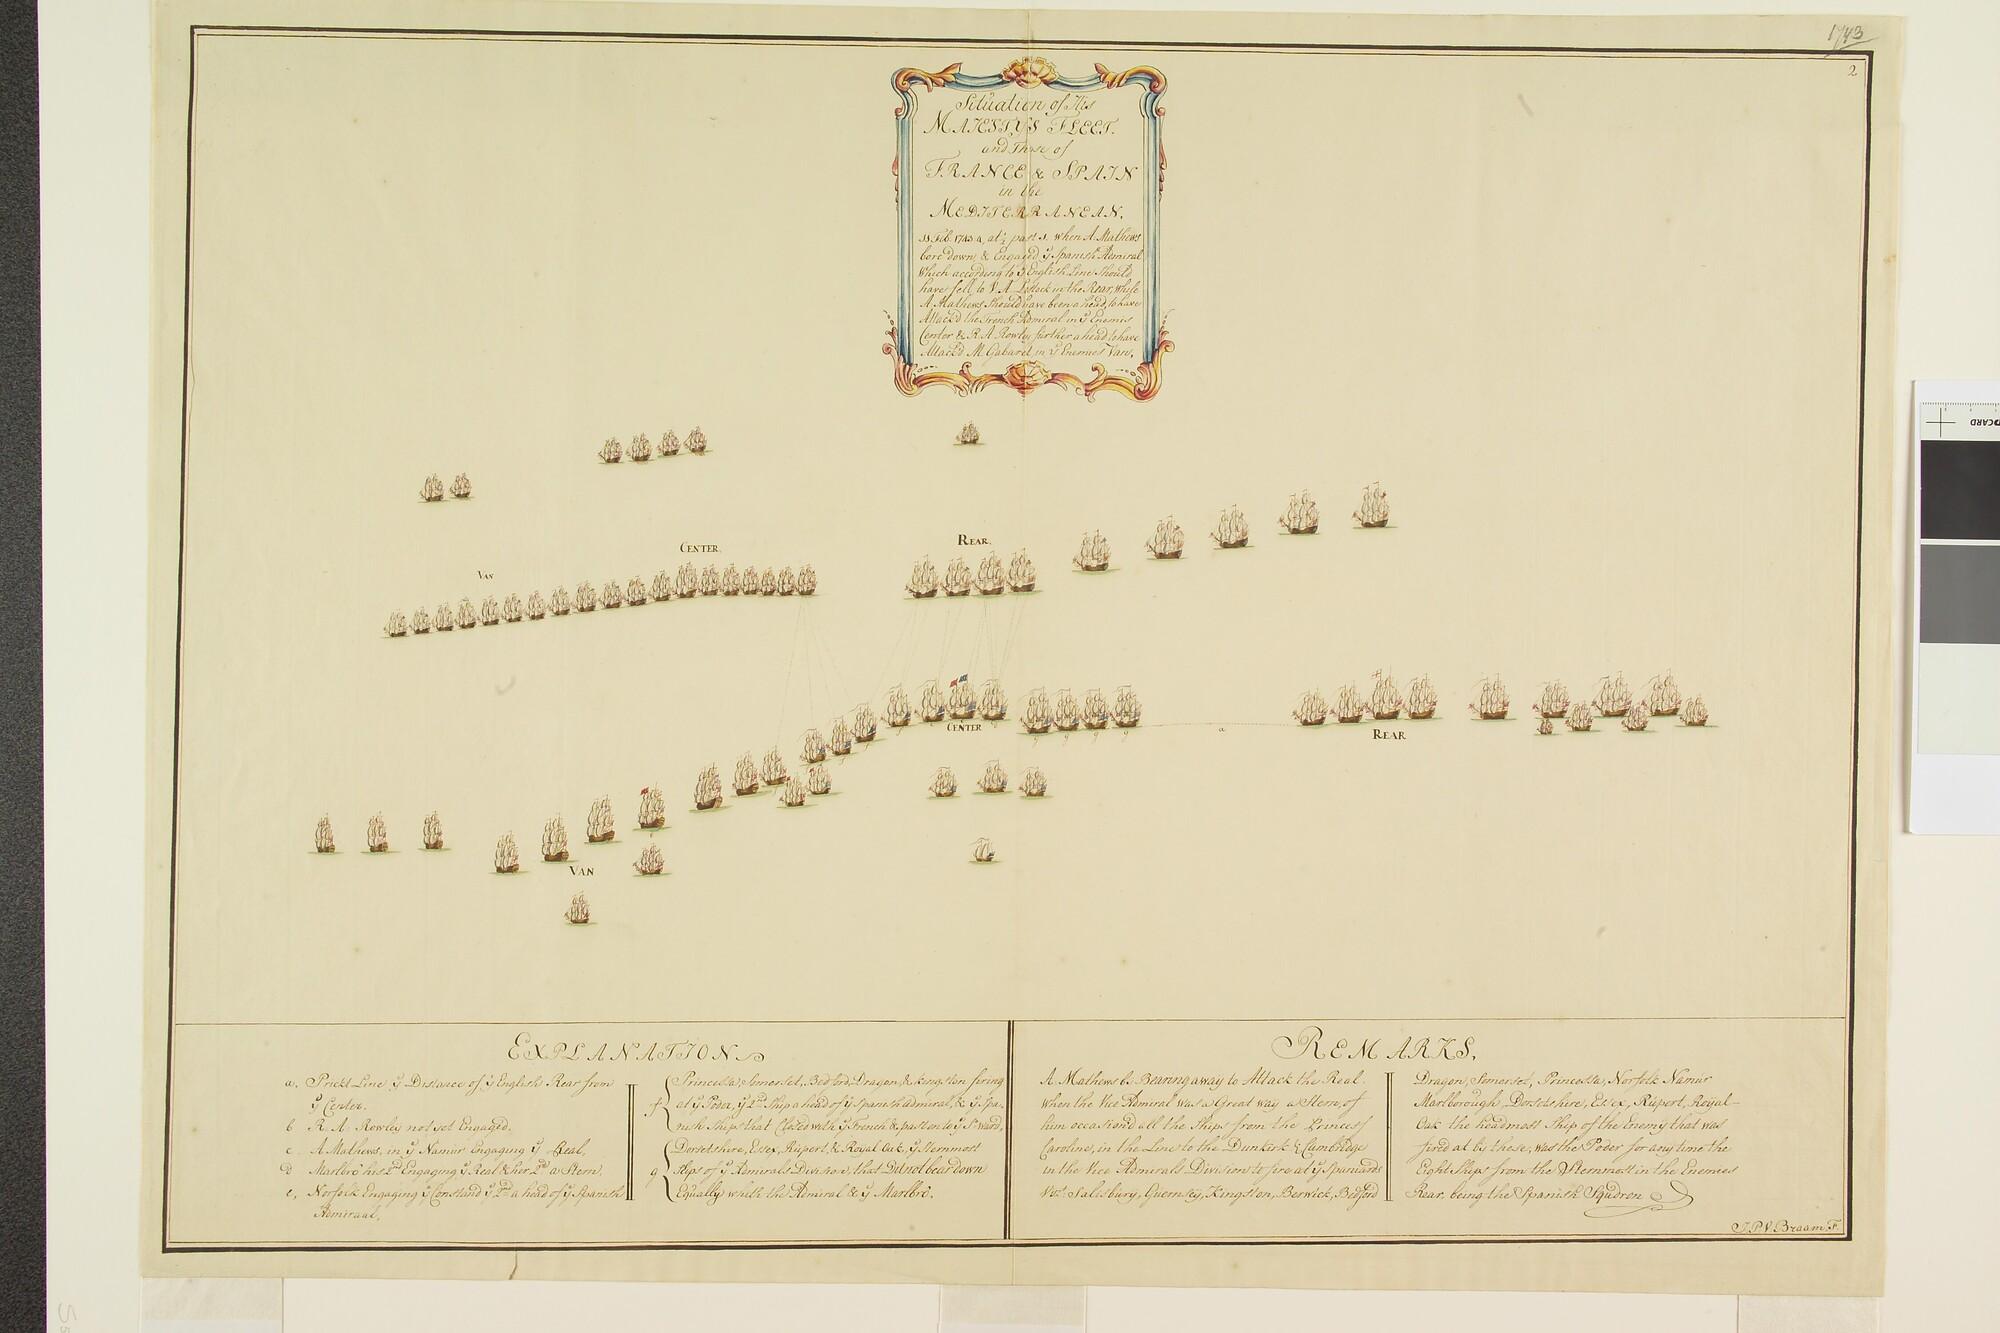 1743
2
Situation of His
MAJESTYS FLEET.
and Those of
FRANCE & SPAIN
in the
MEDITERRANEAN,
11 Feb. 1743/4, at ½ past 1. when A. Mathews
bore down, & Engaged ÿ Spanish Admiral
Which according to ÿ English Line Should
have fell to V. A. Lestock in the Rear, while
A. Mathews Should have been a head, to have
Attack'd the French Admiral in ÿ Enemies
Center & R. A. Rowley further a head to have
Attack'd M. Gabaret in ÿ Enemies Van.
CENTER.
REAR.
VAN
CENTER
REAR
a
VAN
EXPLANATION
a, Prickt Line ÿ Distance of ÿ English Rear from
ÿ Center.
b R. A. Rowley not yet Engaged.
c A Mathews, in ÿ Namur Engaging ÿ Real,
D Marlbro' his 2d Engaging ÿ Real & her 2d a Stern,
e, Norfolk Engaging ÿ Constand ÿ 2d a head of ÿ Spanish
Admiraal,
f Princessa, Somerset, Bedford, Dragon, & Kingston firing
at ÿ Poder, ÿ 2d Ship a head of ÿ Spanish admiral, & ÿ Spa-
nish Ships that Closed with ÿ French & past on to ÿ S'ward,
g Dorsetshire, Essex, Rupert, & Royal Oak, ÿ Sternmost
Ships of ÿ Admirals Division, that Did not bear down
Equally whith the Admiral & ÿ Marlbro.
REMARKS,
A. Mathews by Bearing away to Attack the Real
when the Vice Admiral was a Great way a Stern, of
him occasiond all the Ships from the Princess
Caroline, in the Line to the Dunkirk & Cambridge
in the Vice Admirals Division to fire at ÿ Spaniards
Vizt. Salisbury, Guernsey, Kingston, Berwick, Bedford
Dragon, Somerset, Princessa, Norfolk Namur
Marlborough, Dorsetshire, Essex, Rupert, Royal-
Oak the headmost Ship of the Enemy that was
fired at by these, was the Poder for any time the
Eight Ships from the Sternmost in the Enemies
Rear, being the Spanish Squdron
J.P.V. Braam. F.